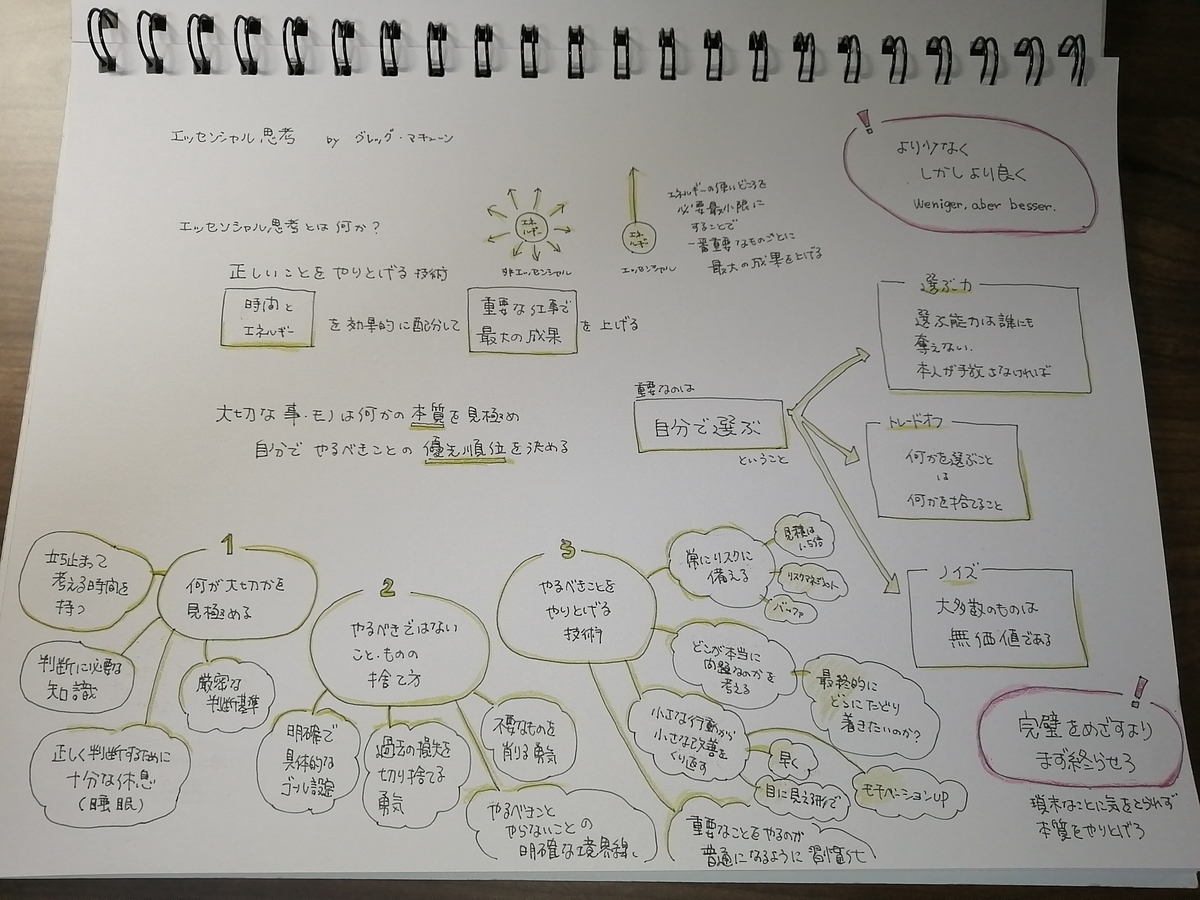 エッセンシャル思考 by グレッグ・マキューン
より少なく
しかしより良く
Weniger, aber besser.
エッセンシャル思考とは何か?
エネルギー
非エッセンシャル
エネルギー
エッセンシャル
エネルギーの使いどころを
必要最小限に
することで
一番重要なものごとに
最大の成果を上げる
正しいことをやりとげる技術
時間と
エネルギー
を効果的に配分して
重要な仕事で
最大の成果
を上げる
大切な事・モノは何かの本質を見極め
自分でやるべきことの優先順位を決める
重要なのは
自分で選ぶ
ということ
選ぶ力
選ぶ能力は誰にも
奪えない.
本人が手放さなければ
トレードオフ
何かを選ぶこと
は
何かを捨てること
ノイズ
大多数のものは
無価値である
1
何が大切かを
見極める
立ち止まって
考える時間を
持つ
判断に必要な
知識
正しく判断するために
十分な休息
(睡眠)
厳密な
判断基準
2
やるべきではない
こと・ものの
捨て方
明確で
具体的な
ゴール設定
過去の損失を
切り捨てる
勇気
不要なものを
削る勇気
やるべきこと
やらないことの
明確な境界線。
3
やるべきことを
やりとげる
技術
常にリスクに
備える
見積は
1.5倍
リスクマネジメント
バッファ
どこが本当に
問題なのかを
考える
最終的に
どこにたどり
着きたいのか?
小さな行動から
小さな改善を
くり返す
早く
目に見える形で
モチベーションUP
重要なことをやるのが
普通になるように習慣化
完璧をめざすより
まず終らせろ
瑣末なことに気をとられず
本質をやりとげろ